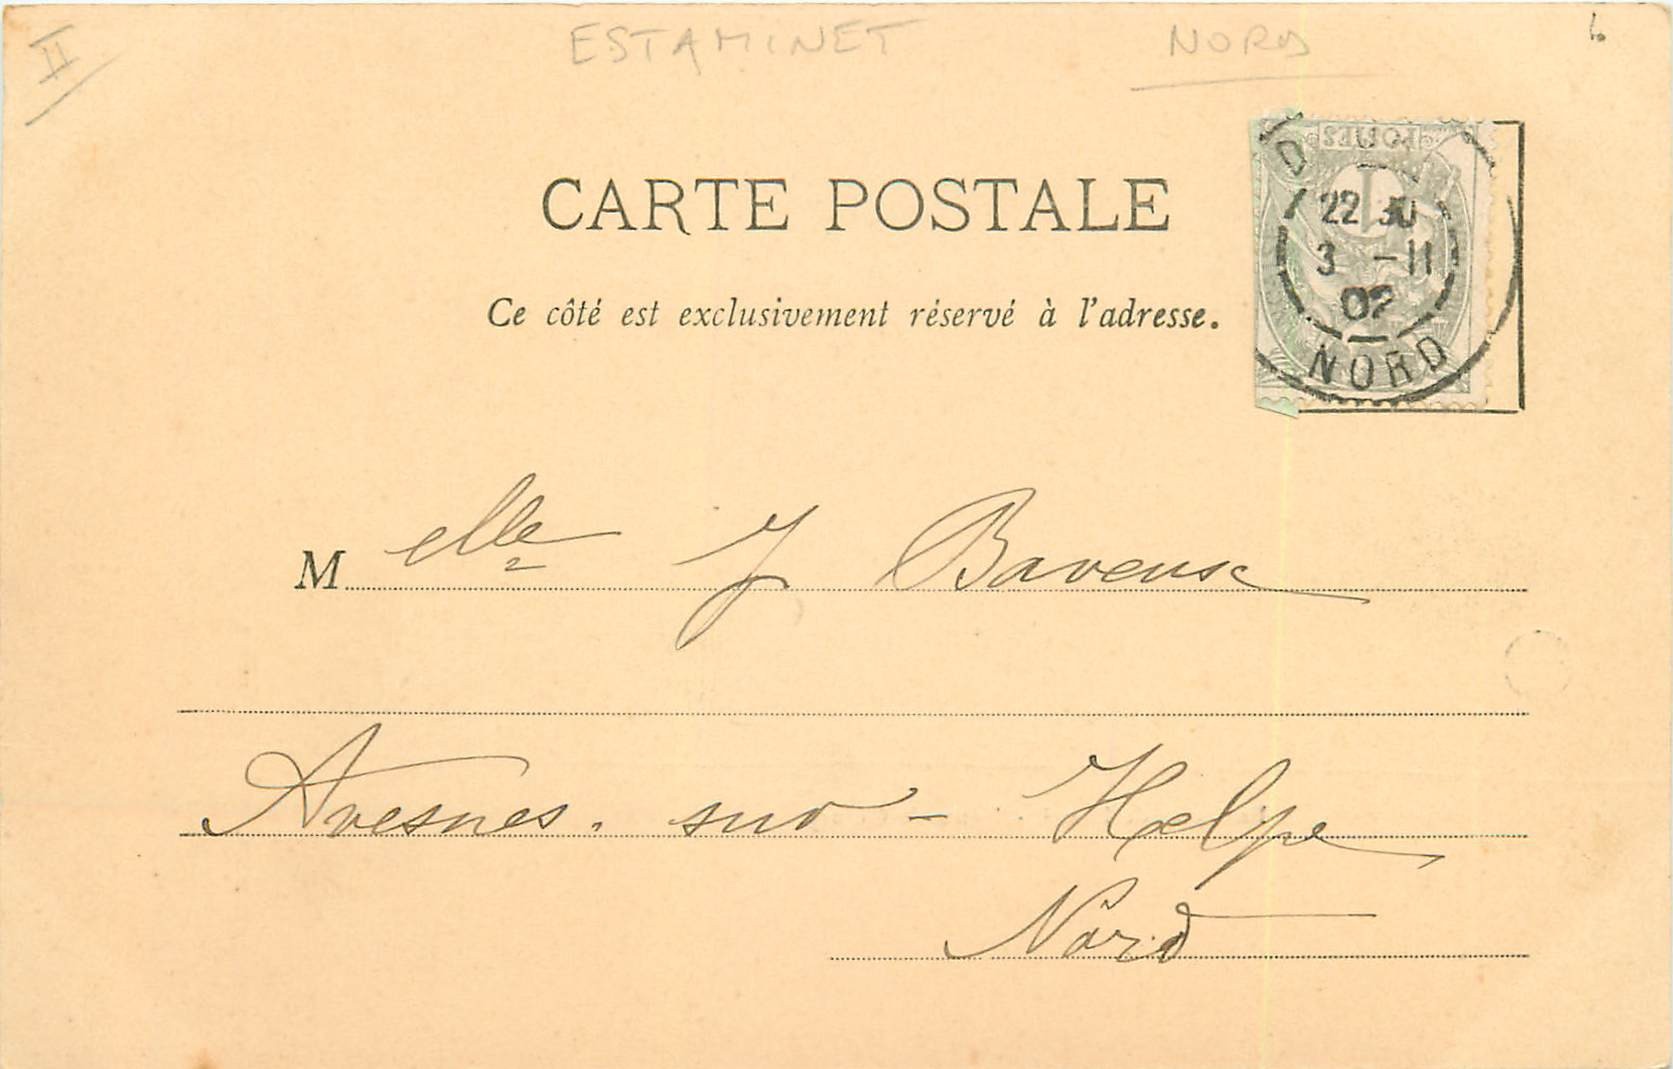 II ESTAMINET NORD 6
CARTE POSTALE
Ce côté est exclusivement réservé à l'adresse.
POSTES
22 30
3 -11
02
NORD
Melle J Baveuse
Avesnes. sur - Helpe
Nord